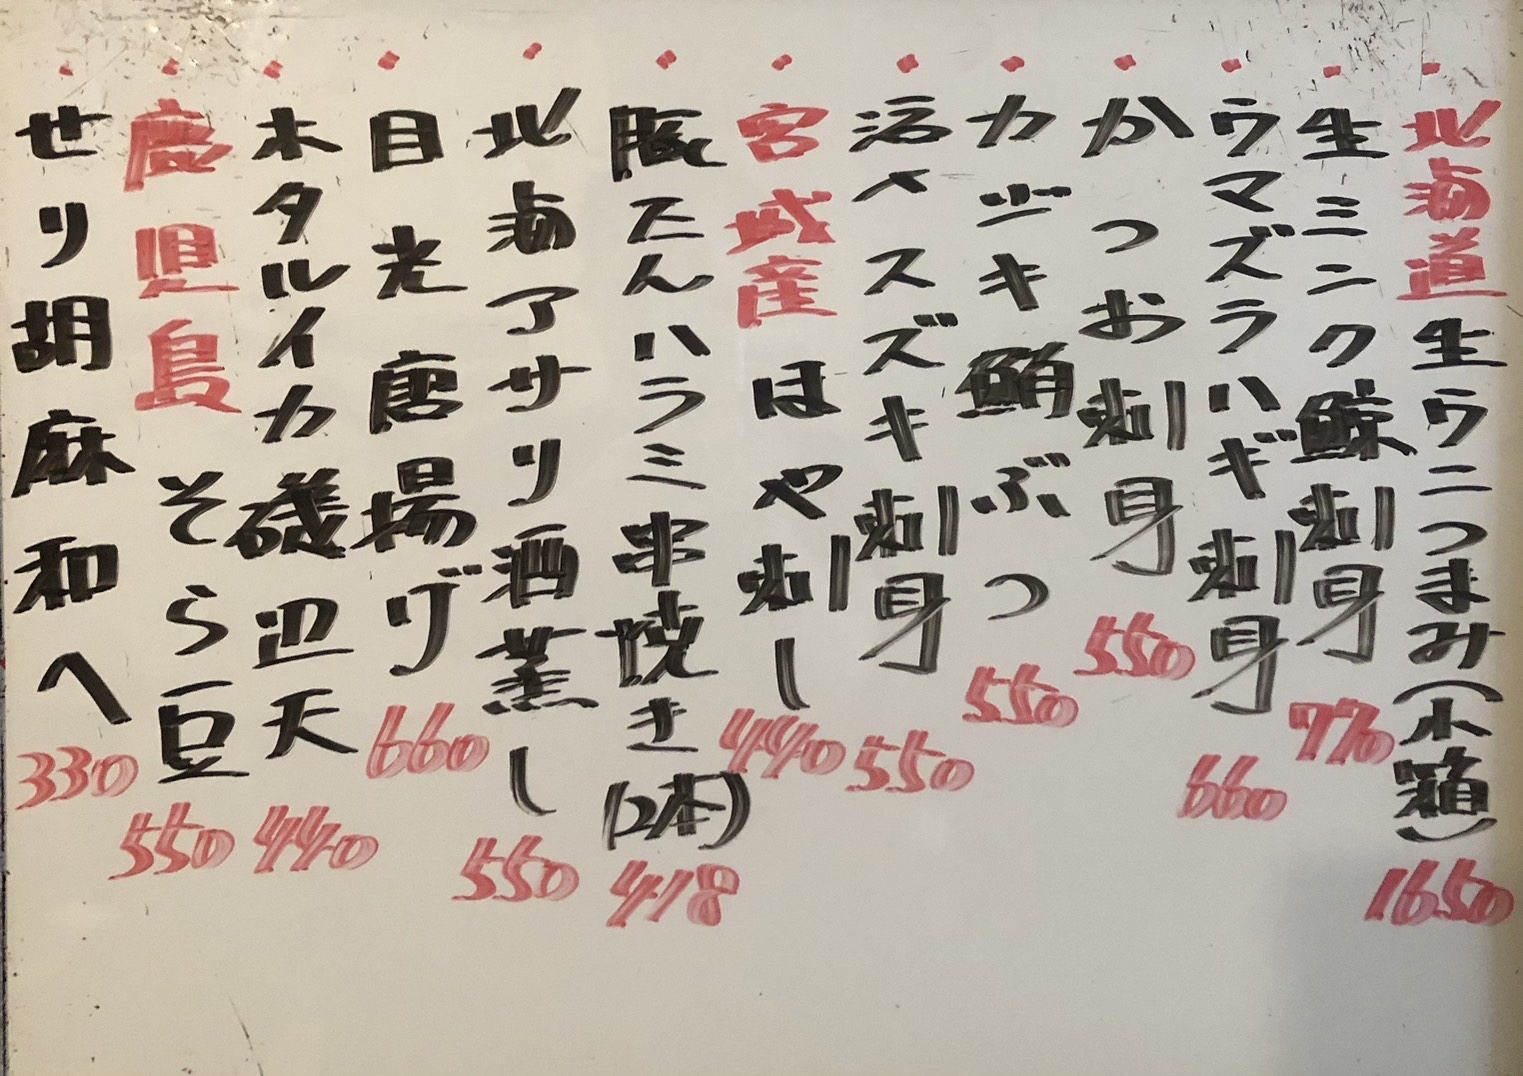 ・北海道生ウニつまみ(小箱) 1650
・生ミンク鯨刺身 770
・ウマズラハギ刺身 660
・かつお刺身 550
・カジキ鮪ぶつ 550
・活〆スズキ刺身 550
・宮城産ほや刺し 440
・豚たんハラミ串焼き(2本) 418
・北海アサリ酒蒸し 550
・目光唐揚げ 660
・ホタルイカ磯辺天 440
・鹿児島そら豆 550
・せり胡麻和へ 330